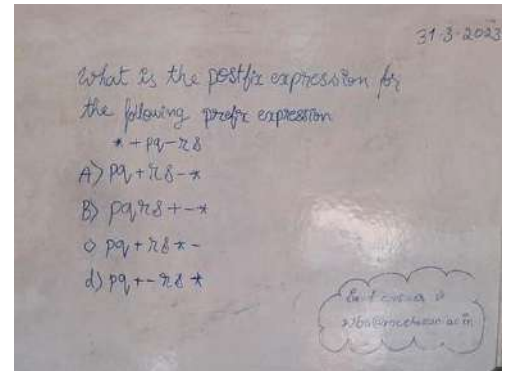 31-3-2023
What is the postfix expression for
the following prefix expression
* + pq - rs
A) pq + rs - *
B) pqrs + - *
c) pq + rs * -
d) pq + - rs *